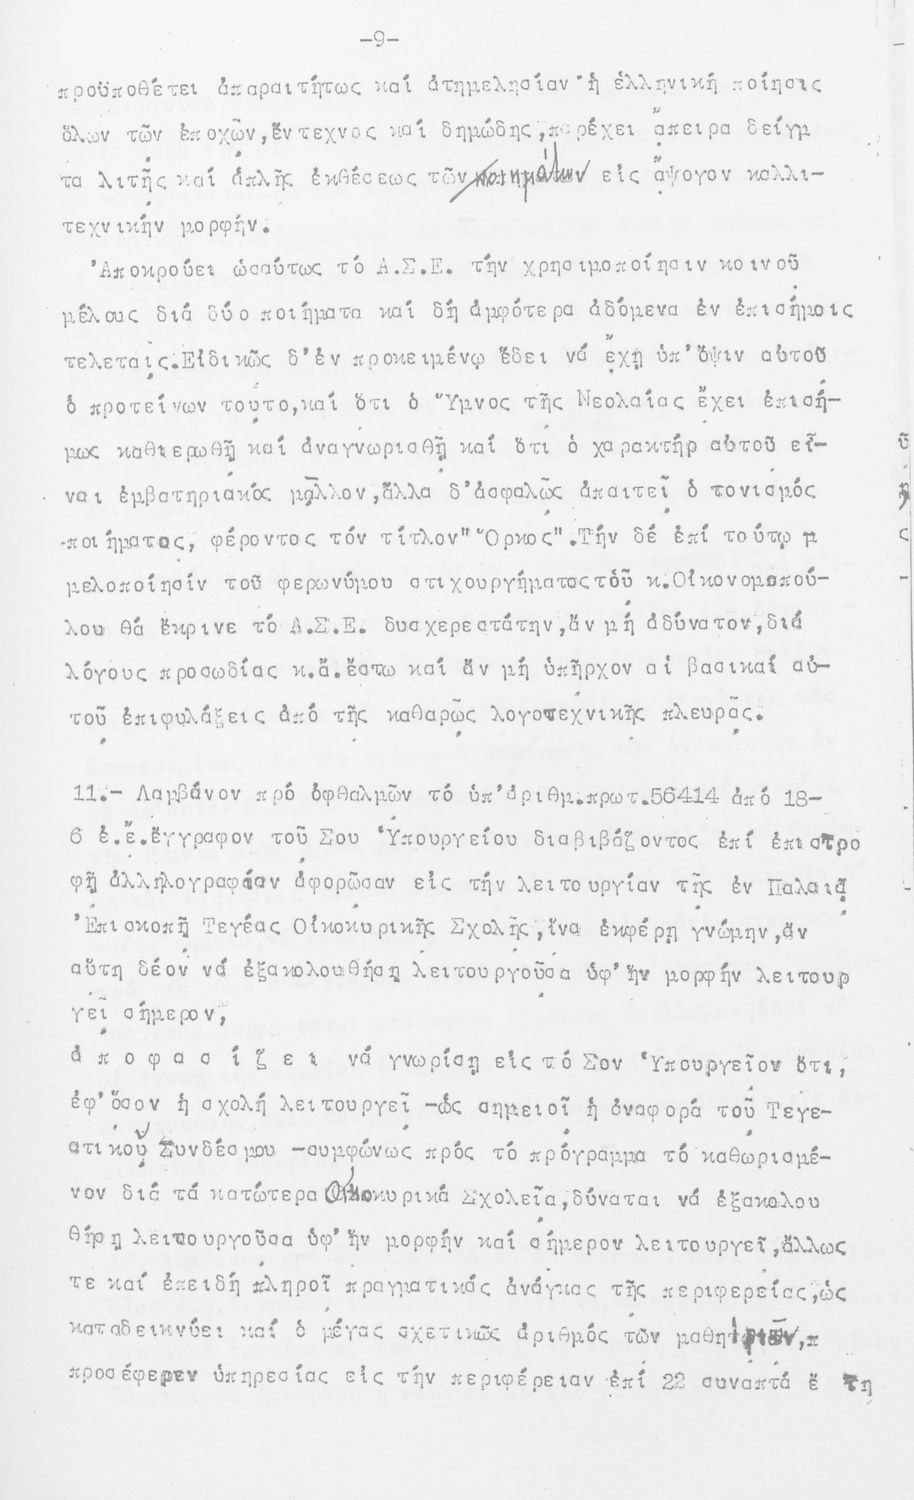 -9-
προϋποθέτει ἀπαραιτήτως καί ἀτημελησίαν ἡ ἑλληνική ποίησις
ὅλων τῶν ἐποχῶν,ἔντεχνος καί δημώδης,παρέχει ἄπειρα δείγμ
τα λιτῆς καί ἁπλῆς ἐκθέσεως τῶν εἰς ἄψογον καλλι-
τεχνικήν μορφήν.
Ἀποκρούει ὡσαύτως τό Α.Σ.Ε. τήν χρησιμοποίησιν κοινοῦ
μέλους διά δύο ποιήματα καί δή ἀμφότερα ἀδόμενα ἐν ἐπισήμοις
τελεταῖς.Εἰδικῶς δ' ἐν προκειμένῳ ἔδει νά ἔχῃ ὑπ' ὄψιν αὐτοῦ
ὁ προτείνων τοῦτο,καί ὅτι ὁ Ὕμνος τῆς Νεολαίας ἔχει ἐπισή-
μως καθιερωθῆ καί ἀναγνωρισθῆ καί ὅτι ὁ χαρακτήρ αὐτοῦ εἶ-
ναι ἐμβατηριακός μᾶλλον,ἄλλα δ' ἀσφαλῶς ἀπαιτεῖ ὁ τονισμός
ποιήματος, φέροντος τόν τίτλον" Ὅρκος".Τήν δέ ἐπί τούτῳ μ
μελοποίησίν τοῦ φερωνύμου στιχουργήματος τοῦ κ.Οἰκονομοπού-
λου θά ἔκρινε τό Α.Σ.Ε. δυσχερεστάτην,ἄν μή ἀδύνατον,διά
λόγους προσωδίας κ.ἄ.ἔστω καί ἄν μή ὑπῆρχον αἱ βασικαί αὐ-
τοῦ ἐπιφυλάξεις ἀπό τῆς καθαρῶς λογοτεχνικῆς πλευρᾶς.
11.- Λαμβάνον πρό ὀφθαλμῶν τό ὑπ' ἀριθμ.πρωτ.56414 ἀπό 18-
6 ἐ.ἔ.ἔγγραφον τοῦ Σου Ὑπουργείου διαβιβάζοντος ἐπί ἐπιστρο
φῇ ἀλληλογραφίαν ἀφορῶσαν εἰς τήν λειτουργίαν τῆς ἐν Παλαιᾷ
Ἐπισκοπῇ Τεγέας Οἰκοκυρικῆς Σχολῆς,ἵνα ἐκφέρῃ γνώμην,ἄν
αὕτη δέον νά ἐξακολουθήσῃ λειτουργοῦσα ὑφ' ἥν μορφήν λειτουρ
γεῖ σήμερον,
ἀ π ο φ α σ ί ζ ε ι νά γνωρίσῃ εἰς τό Σον Ὑπουργεῖον ὅτι,
ἐφ' ὅσον ἡ σχολή λειτουργεῖ -ὡς σημειοῖ ἡ ἀναφορά τοῦ Τεγε-
ατικοῦ Συνδέσμου -συμφώνως πρός τό πρόγραμμα τό καθωρισμέ-
νον διά τά κατώτερα Οἰκοκυρικά Σχολεῖα,δύναται νά ἐξακολου
θήσῃ λειτουργοῦσα ὑφ' ἥν μορφήν καί σήμερον λειτουργεῖ,ἄλλως
τε καί ἐπειδή πληροῖ πραγματικάς ἀνάγκας τῆς περιφερείας,ὡς
καταδεικνύει καί ὁ μέγας σχετικῶς ἀριθμός τῶν μαθητριῶν,π
προσέφερεν ὑπηρεσίας εἰς τήν περιφέρειαν ἐπί 22 συναπτά ἔ τη